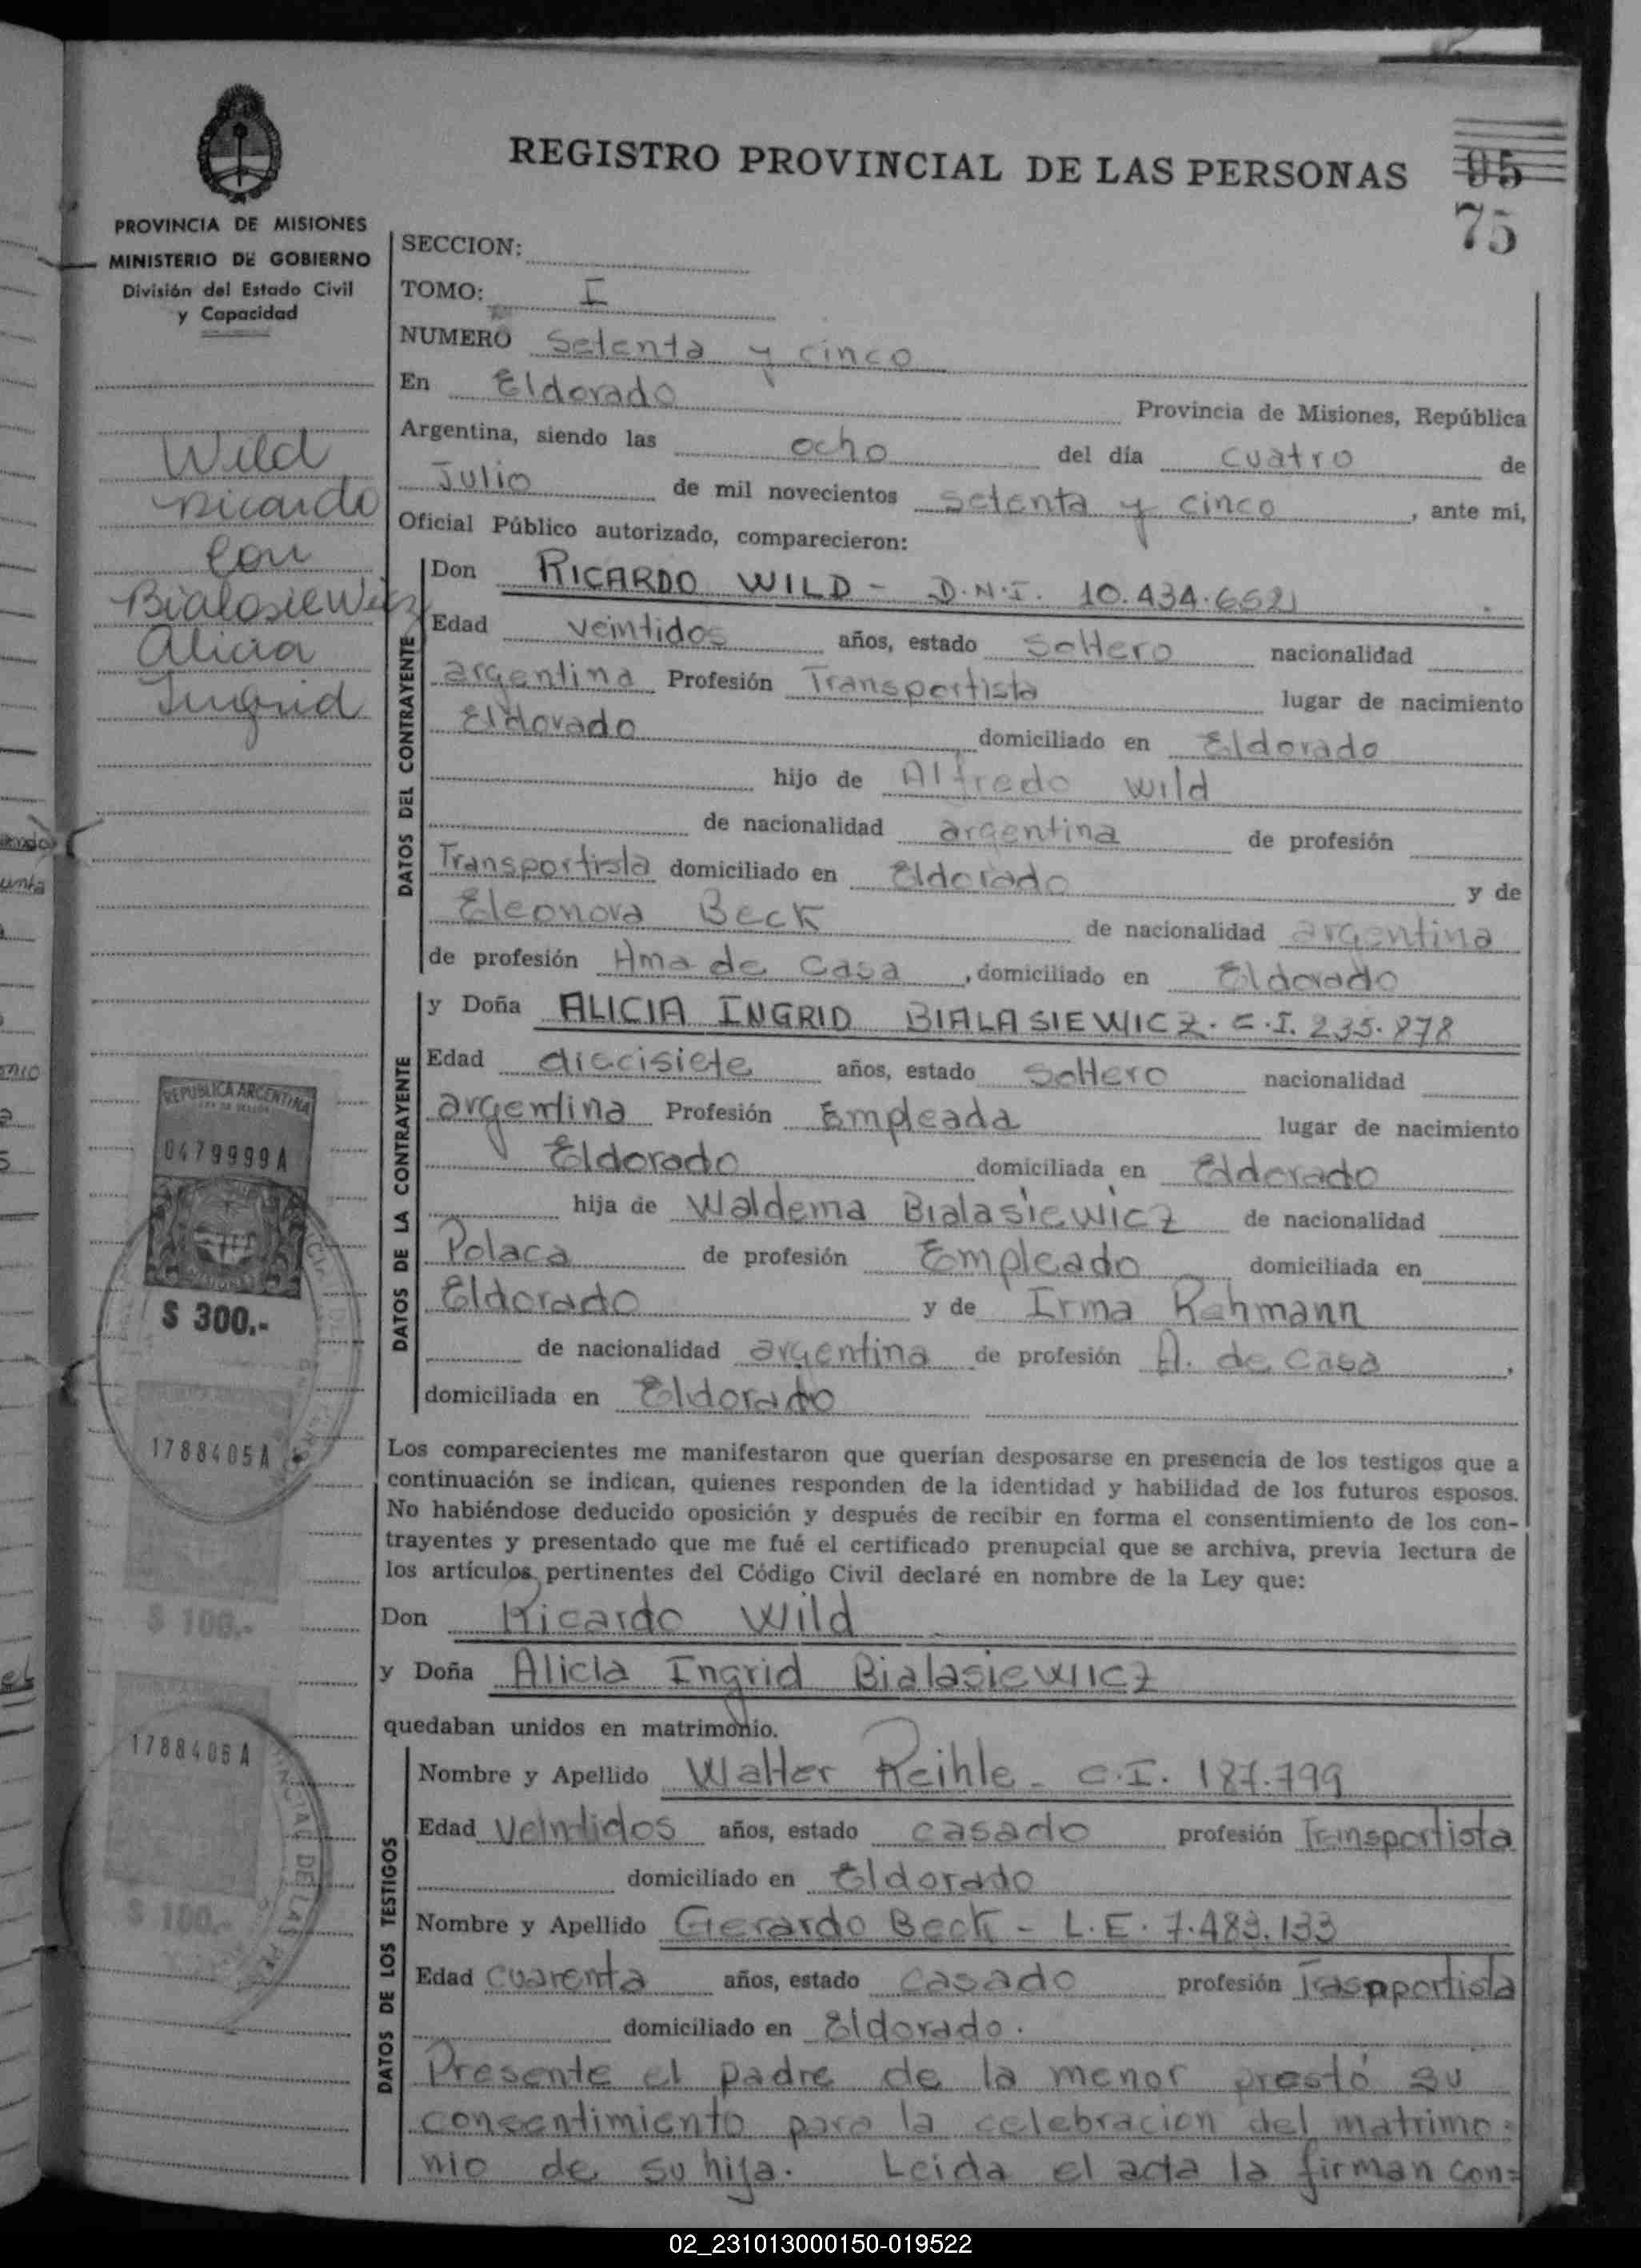 REGISTRO PROVINCIAL DE LAS PERSONAS
95
75
PROVINCIA DE MISIONES
MINISTERIO DE GOBIERNO
División del Estado Civil
y Capacidad
Wild
Ricardo
con
Bialasiewicz
Alicia
Ingrid
REPUBLICA ARGENTINA
0479999A
$ 300.-
1788405A
$ 100.-
1788406A
$ 100.-
SECCION:
TOMO: I
NUMERO Setenta y cinco
En Eldorado Provincia de Misiones, República
Argentina, siendo las ocho del día cuatro de
Julio de mil novecientos setenta y cinco, ante mi,
Oficial Público autorizado, comparecieron:
DATOS DEL CONTRAYENTE
Don RICARDO WILD - D.N.I. 10.434.6521
Edad veintidos años, estado Soltero nacionalidad
argentina Profesión Transportista lugar de nacimiento
Eldorado domiciliado en Eldorado
hijo de Alfredo Wild
de nacionalidad argentina de profesión
Transportista domiciliado en Eldorado y de
Eleonora Beck de nacionalidad argentina
de profesión Ama de Casa, domiciliado en Eldorado
DATOS DE LA CONTRAYENTE
y Doña ALICIA INGRID BIALASIEWICZ. C.I. 235.878
Edad diecisiete años, estado Soltero nacionalidad
argentina Profesión Empleada lugar de nacimiento
Eldorado domiciliada en Eldorado
hija de Waldema Bialasiewicz de nacionalidad
Polaca de profesión Empleado domiciliada en
Eldorado y de Irma Rehmann
de nacionalidad argentina de profesión A. de Casa.
domiciliada en Eldorado
Los comparecientes me manifestaron que querían desposarse en presencia de los testigos que a
continuación se indican, quienes responden de la identidad y habilidad de los futuros esposos.
No habiéndose deducido oposición y después de recibir en forma el consentimiento de los con-
trayentes y presentado que me fué el certificado prenupcial que se archiva, previa lectura de
los artículos pertinentes del Código Civil declaré en nombre de la Ley que:
Don Ricardo Wild
y Doña Alicia Ingrid Bialasiewicz
quedaban unidos en matrimonio.
DATOS DE LOS TESTIGOS
Nombre y Apellido Walter Reihle - C.I. 187.799
Edad Veintidos años, estado casado profesión Transportista
domiciliado en Eldorado
Nombre y Apellido Gerardo Beck - L.E. 7.483.133
Edad cuarenta años, estado casado profesión Traspportista
domiciliado en Eldorado.
Presente el padre de la menor prestó su
consentimiento para la celebracion del matrimo=
nio de su hija. Leida el acta la firman con=
02_231013000150-019522